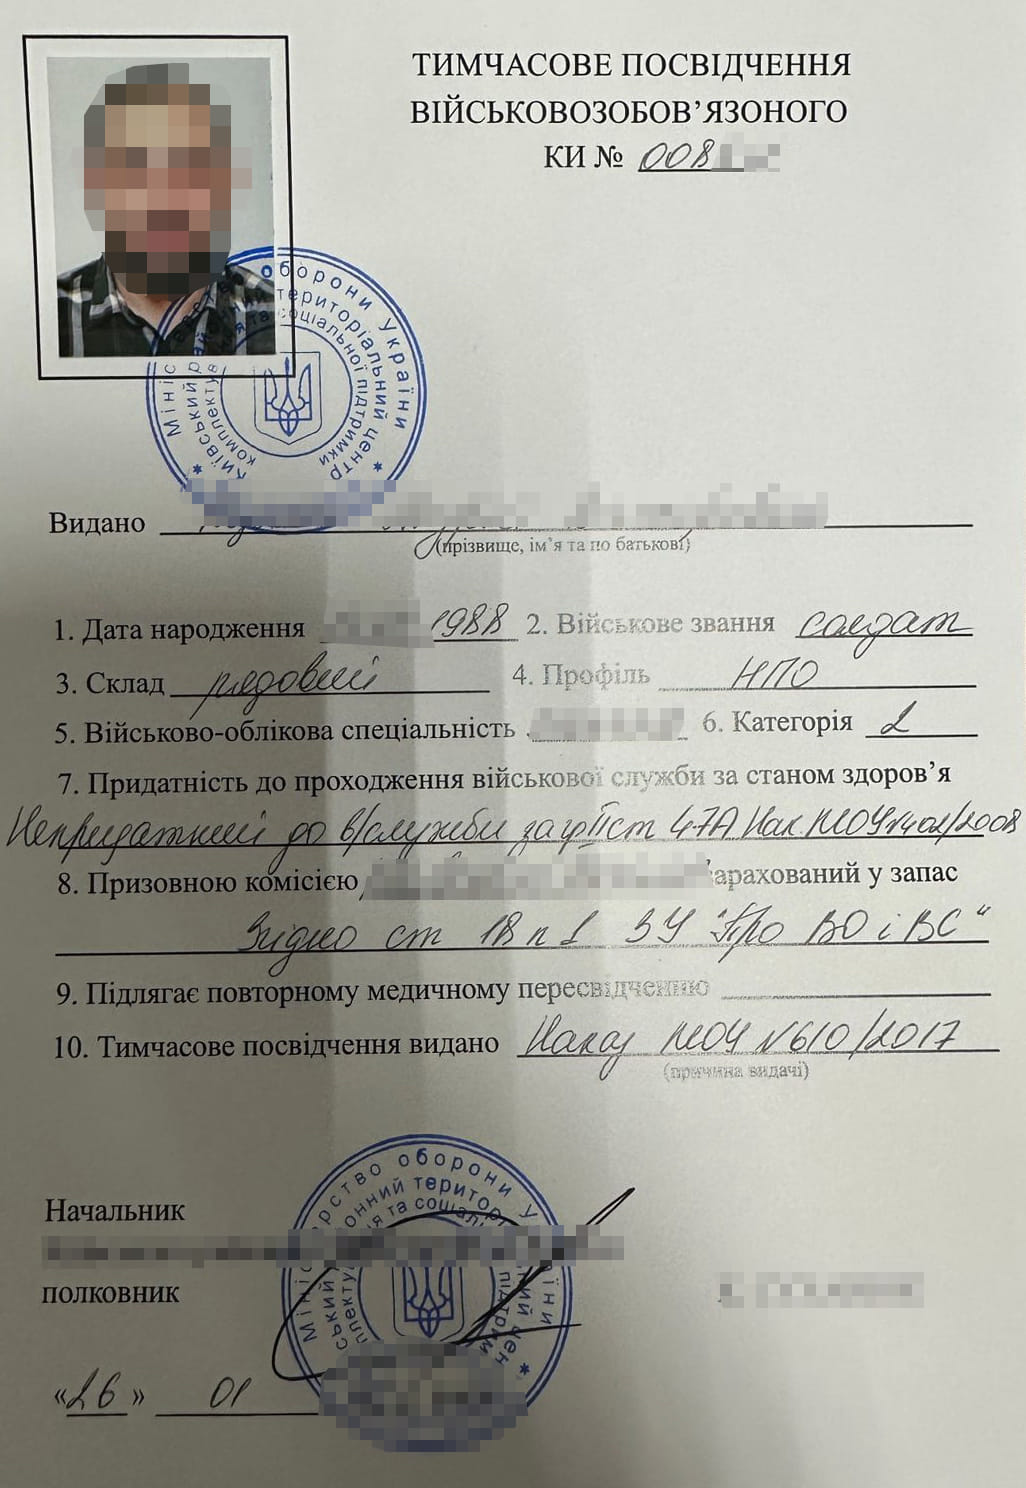 ТИМЧАСОВЕ ПОСВІДЧЕННЯ
ВІЙСЬКОВОЗОБОВ’ЯЗОНОГО
КИ № 008
Міністерство оборони України
Київський районний територіальний центр
комплектування та соціальної підтримки
Видано
(прізвище, ім’я та по батькові)
1. Дата народження 1988 2. Військове звання солдат
3. Склад рядовий 4. Профіль НПО
5. Військово-облікова спеціальність 6. Категорія 2
7. Придатність до проходження військової служби за станом здоров’я
Непридатний до в/служби за гр II ст 47А Нак. МОУ №402/2008
8. Призовною комісією зарахований у запас
Згідно ст 18 п 1 ЗУ "Про ВО і ВС"
9. Підлягає повторному медичному пересвідченню
10. Тимчасове посвідчення видано Наказ МОУ №610/2017
(причина видачі)
Начальник
полковник
«26» 01